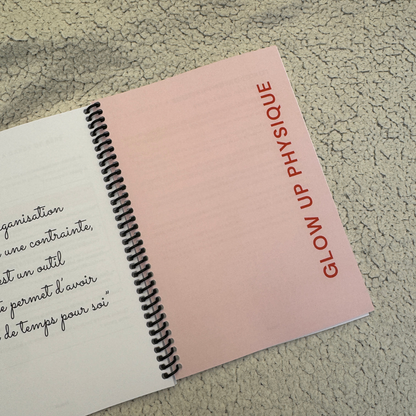 ganisation
une contrainte,
est un outil
permet d'avoir
de temps pour soi"
GLOW UP PHYSIQUE